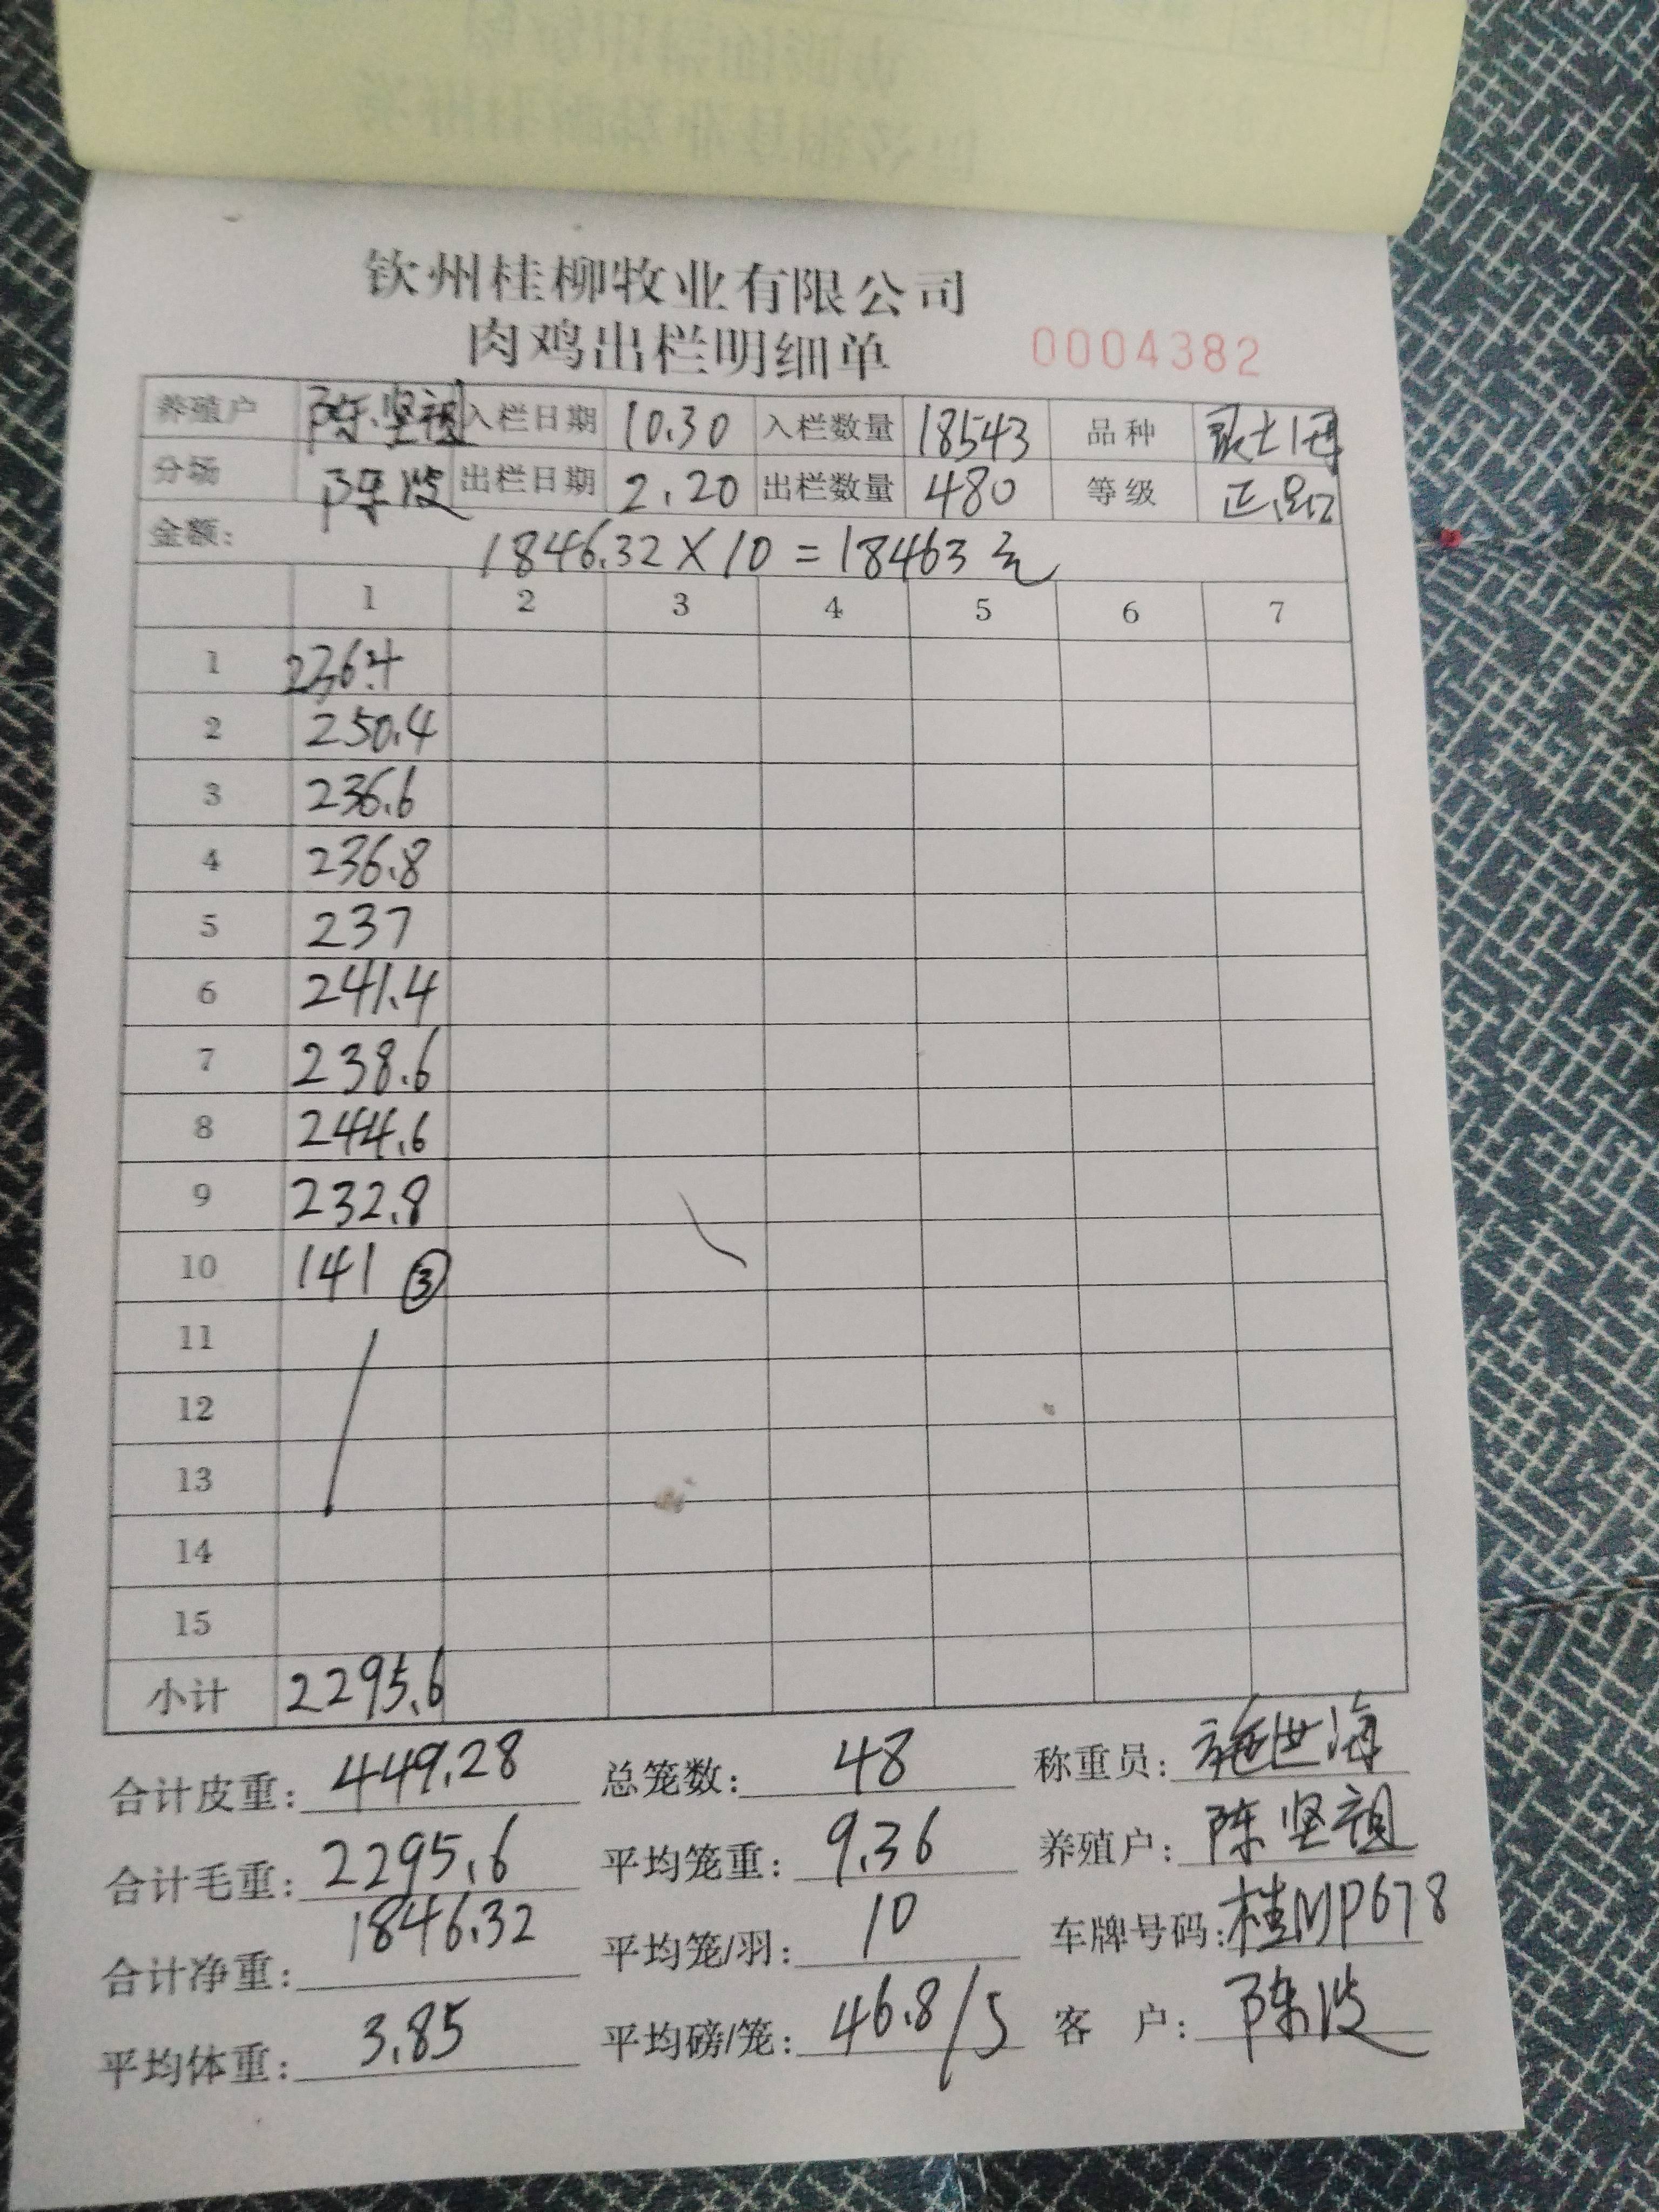 钦州桂柳牧业有限公司
肉鸡出栏明细单 0004382
养殖户 陈坚祖 入栏日期 10.30 入栏数量 18543 品种
分场 陈波 出栏日期 2.20 出栏数量 480 等级 正品
金额: 1846.32×10=18463元
1 2 3 4 5 6 7
1 236.4
2 250.4
3 236.6
4 236.8
5 237
6 241.4
7 238.6
8 244.6
9 232.8
10 141 ③
11
12
13
14
15
小计 2295.6
合计皮重: 449.28 总笼数: 48 称重员: 施世海
合计毛重: 2295.6 平均笼重: 9.36 养殖户: 陈坚祖
合计净重: 1846.32 平均笼/羽: 10 车牌号码: 桂NP678
平均体重: 3.85 平均磅/笼: 46.8/5 客户: 陈波